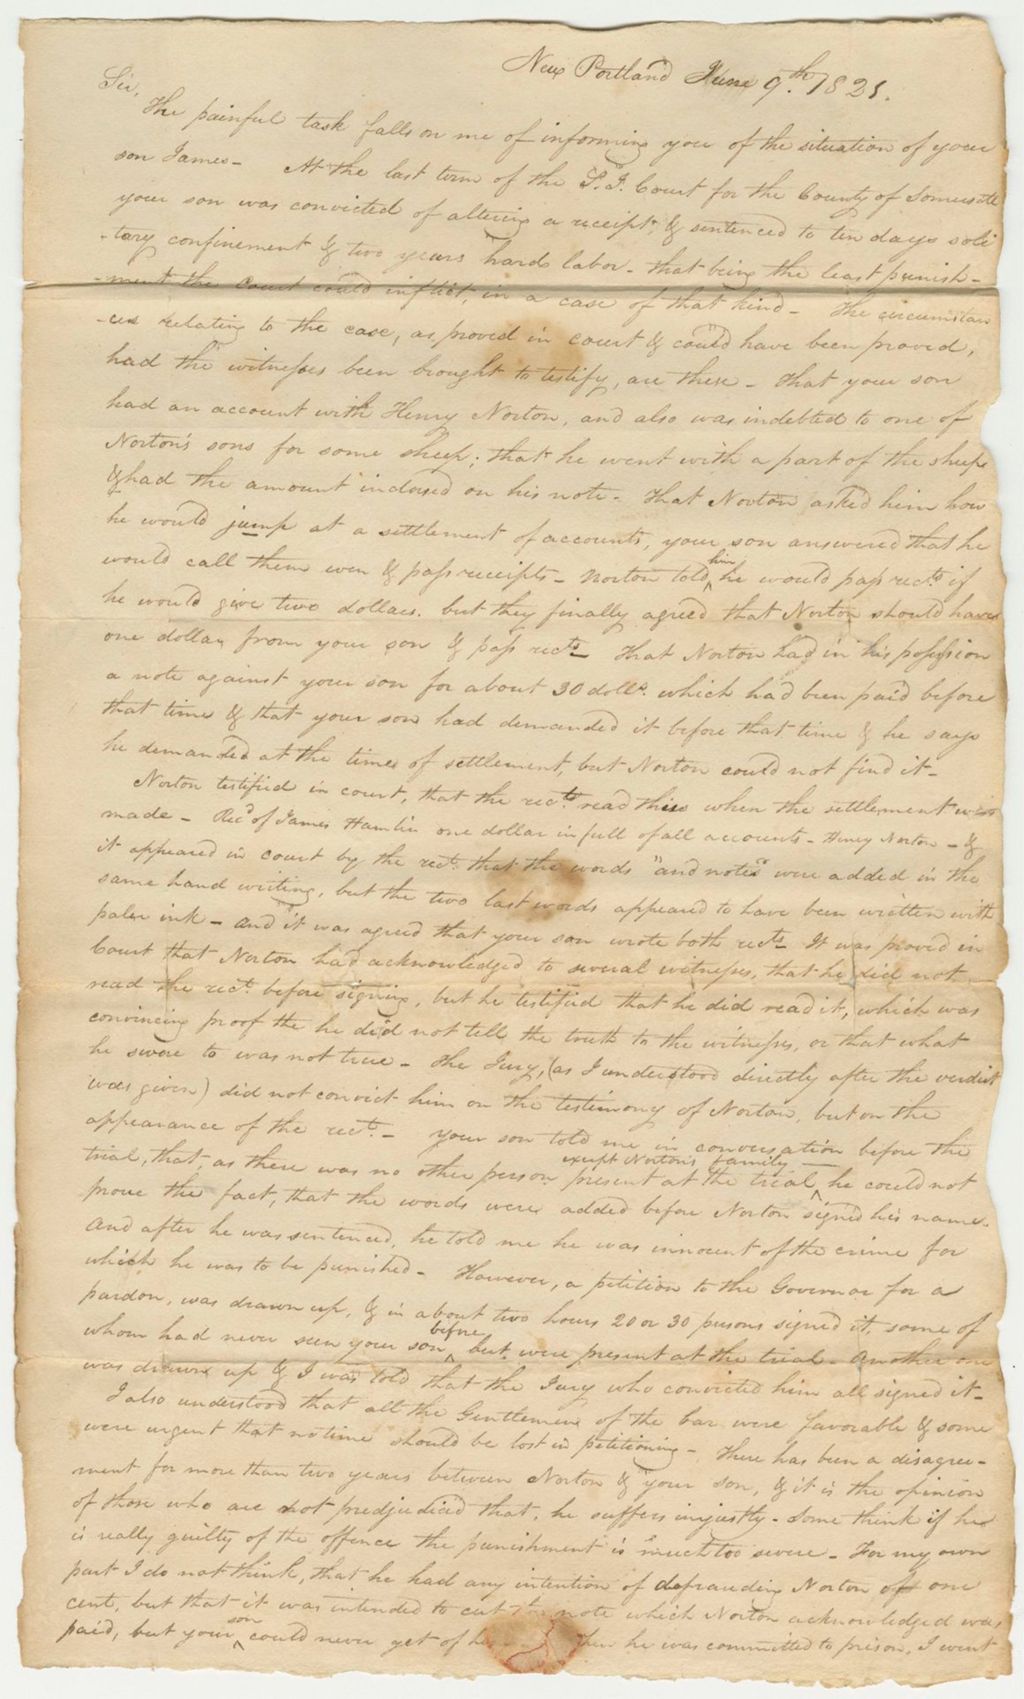 New Portland June 9.th 1821.
Sir,
The painful task falls on me of informing you of the situation of your
son James - At the last term of the S.J. Court for the County of Somersett
your son was convicted of altering a receipt, & sentenced to ten days soli
-tary confinement & two years hard labor - that being the least punish-
-ment the Court could inflict, in a case of that kind - The circumstan
-ces relating to the case, as proved in court & could have been proved,
had the witnesses been brought to testify, are these - That your son
had an account with Henry Norton, and also was indebted to one of
Norton's sons for some sheep; that he went with a part of the sheep
& had the amount indorsed on his note - That Norton asked him how
he would jump at a settlement of accounts, your son answered that he
would call them even & pass receipts - Norton told him he would pass rects if
he would give two dollars. but they finally agreed that Norton should have
one dollar from your son & pass rects - That Norton had in his possession
a note against your son for about 30 dolls. which had been paid before
that time & that your son had demanded it before that time & he says
he demanded at the time of settlement, but Norton could not find it -
Norton testified in court, that the rect. read thus when the settlement was
made - Recd of James Hamlin one dollar in full of all accounts - Henry Norton - &
it appeared in court by the rect. that the words "and notes" were added in the
same hand writing, but the two last words appeared to have been written with
paler ink - and it was agreed that your son wrote both rects - It was proved in
Court that Norton had acknowledged to several witnesses, that he did not
read the rect. before signing, but he testified that he did read it, which was
convincing proof the he did not tell the truth to the witnesses, or that what
he swore to was not true - The Jury, (as I understood directly after the verdict
was given) did not convict him on the testimony of Norton, but on the
appearance of the rect. - your son told me in conversation before the
trial, that, as there was no other person present at the trial except Norton's family - he could not
prove the fact, that the words were added before Norton signed his name.
And after he was sentenced, he told me he was innocent of the crime for
which he was to be punished - However, a petition to the Governor for a
pardon, was drawn up, & in about two hours 20 or 30 persons signed it, some of
whom had never seen your son before but were present at the trial - Another one
was drawn up & I was told that the Jury who convicted him all signed it -
I also understood that all the Gentlemen of the bar were favorable & some
were urgent that no time should be lost in petitioning - There has been a disagree-
ment for more than two years between Norton & your son, & it is the opinion
of those who are not predjudiced that, he suffers injustly - Some think if he
is really guilty of the offence the punishment is much too severe - For my own
part I do not think, that he had any intention of defrauding Norton of one
cent, but that it was intended to cut the note which Norton acknowledged was
paid, but your son could never get of he was committed to prison, I went